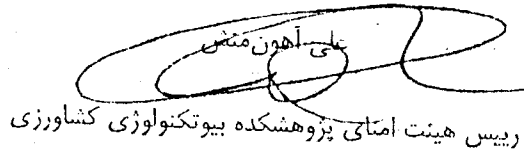 علی آهون‌منش
رییس هیئت امنای پژوهشکده بیوتکنولوژی کشاورزی